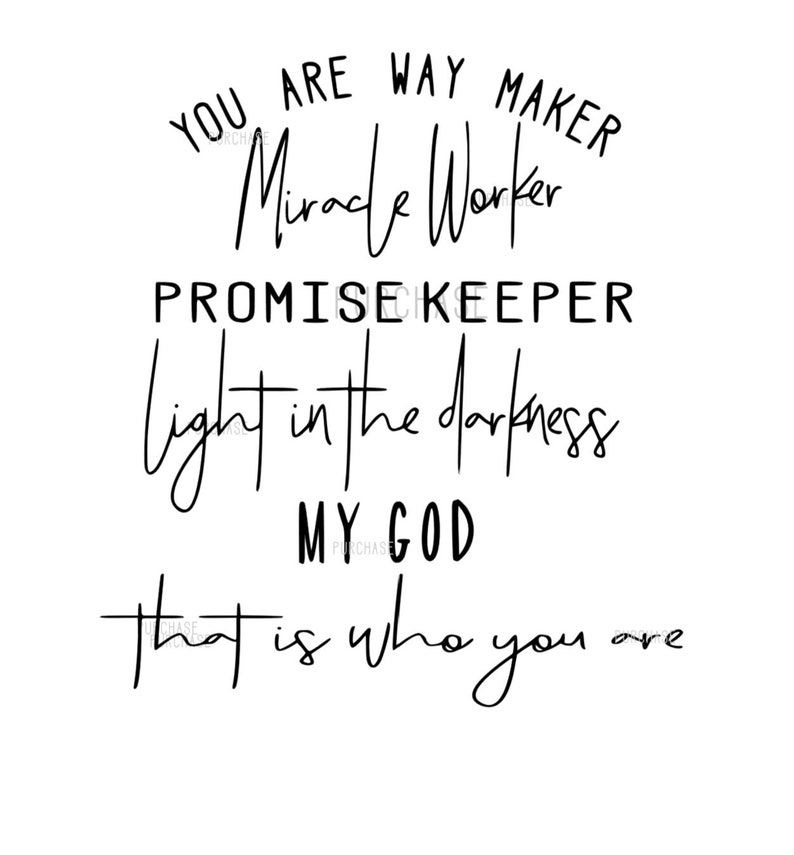 YOU ARE WAY MAKER
PURCHASE
Miracle Worker
PROMISE KEEPER
PURCHASE
light in the darkness
MY GOD
PURCHASE
that is who you are
PURCHASE
PURCHASE
PURCHASE